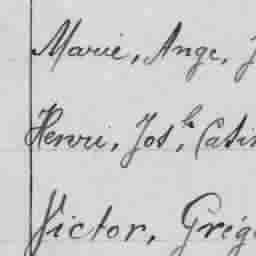 Marie, Ange, J
Henri, Jos.h, Casi
Victor, Grég